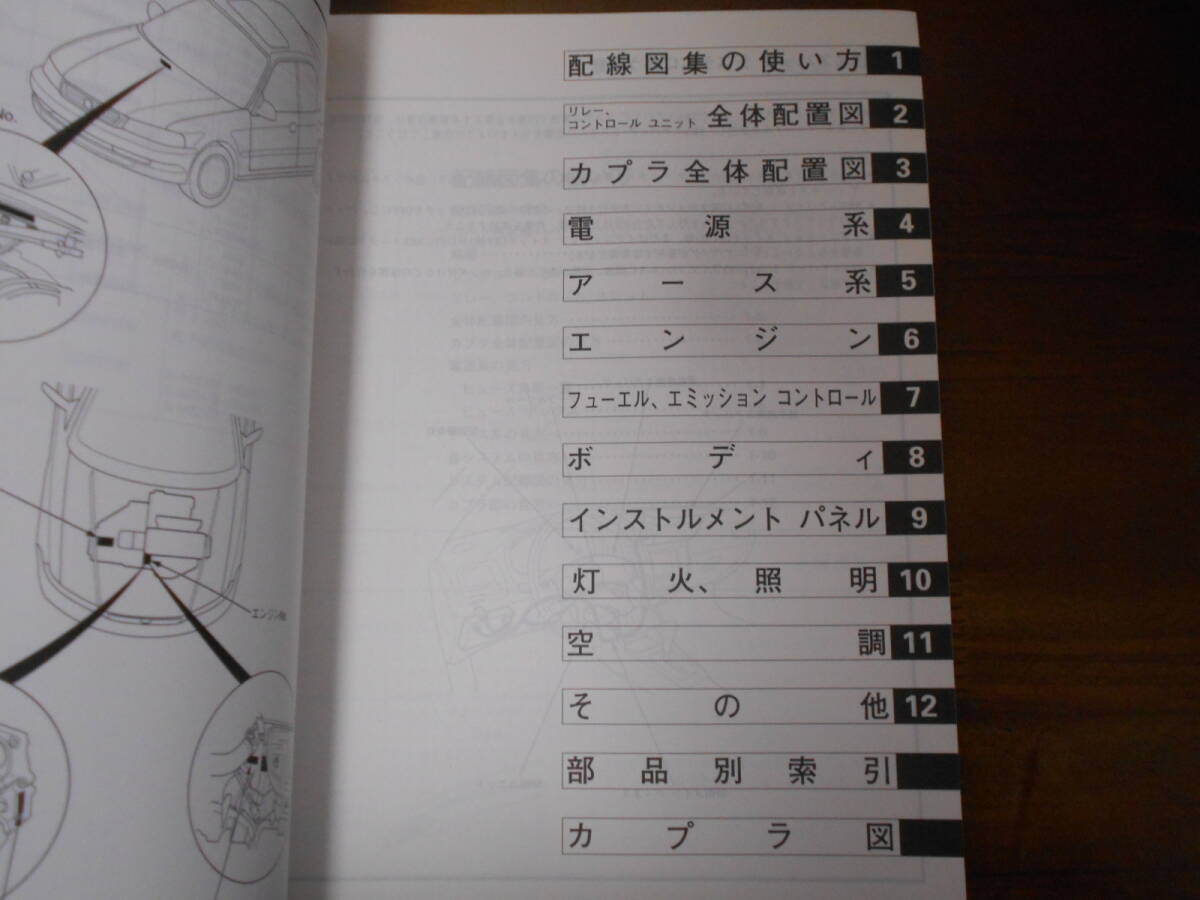 No.
エンジンNo.
配線図集の使い方 1
リレー、
コントロール ユニット 全体配置図 2
カプラ全体配置図 3
電源系 4
アース系 5
エンジン 6
フューエル、エミッション コントロール 7
ボディ 8
インストルメント パネル 9
灯火、照明 10
空調 11
その他 12
部品別索引
カプラ図